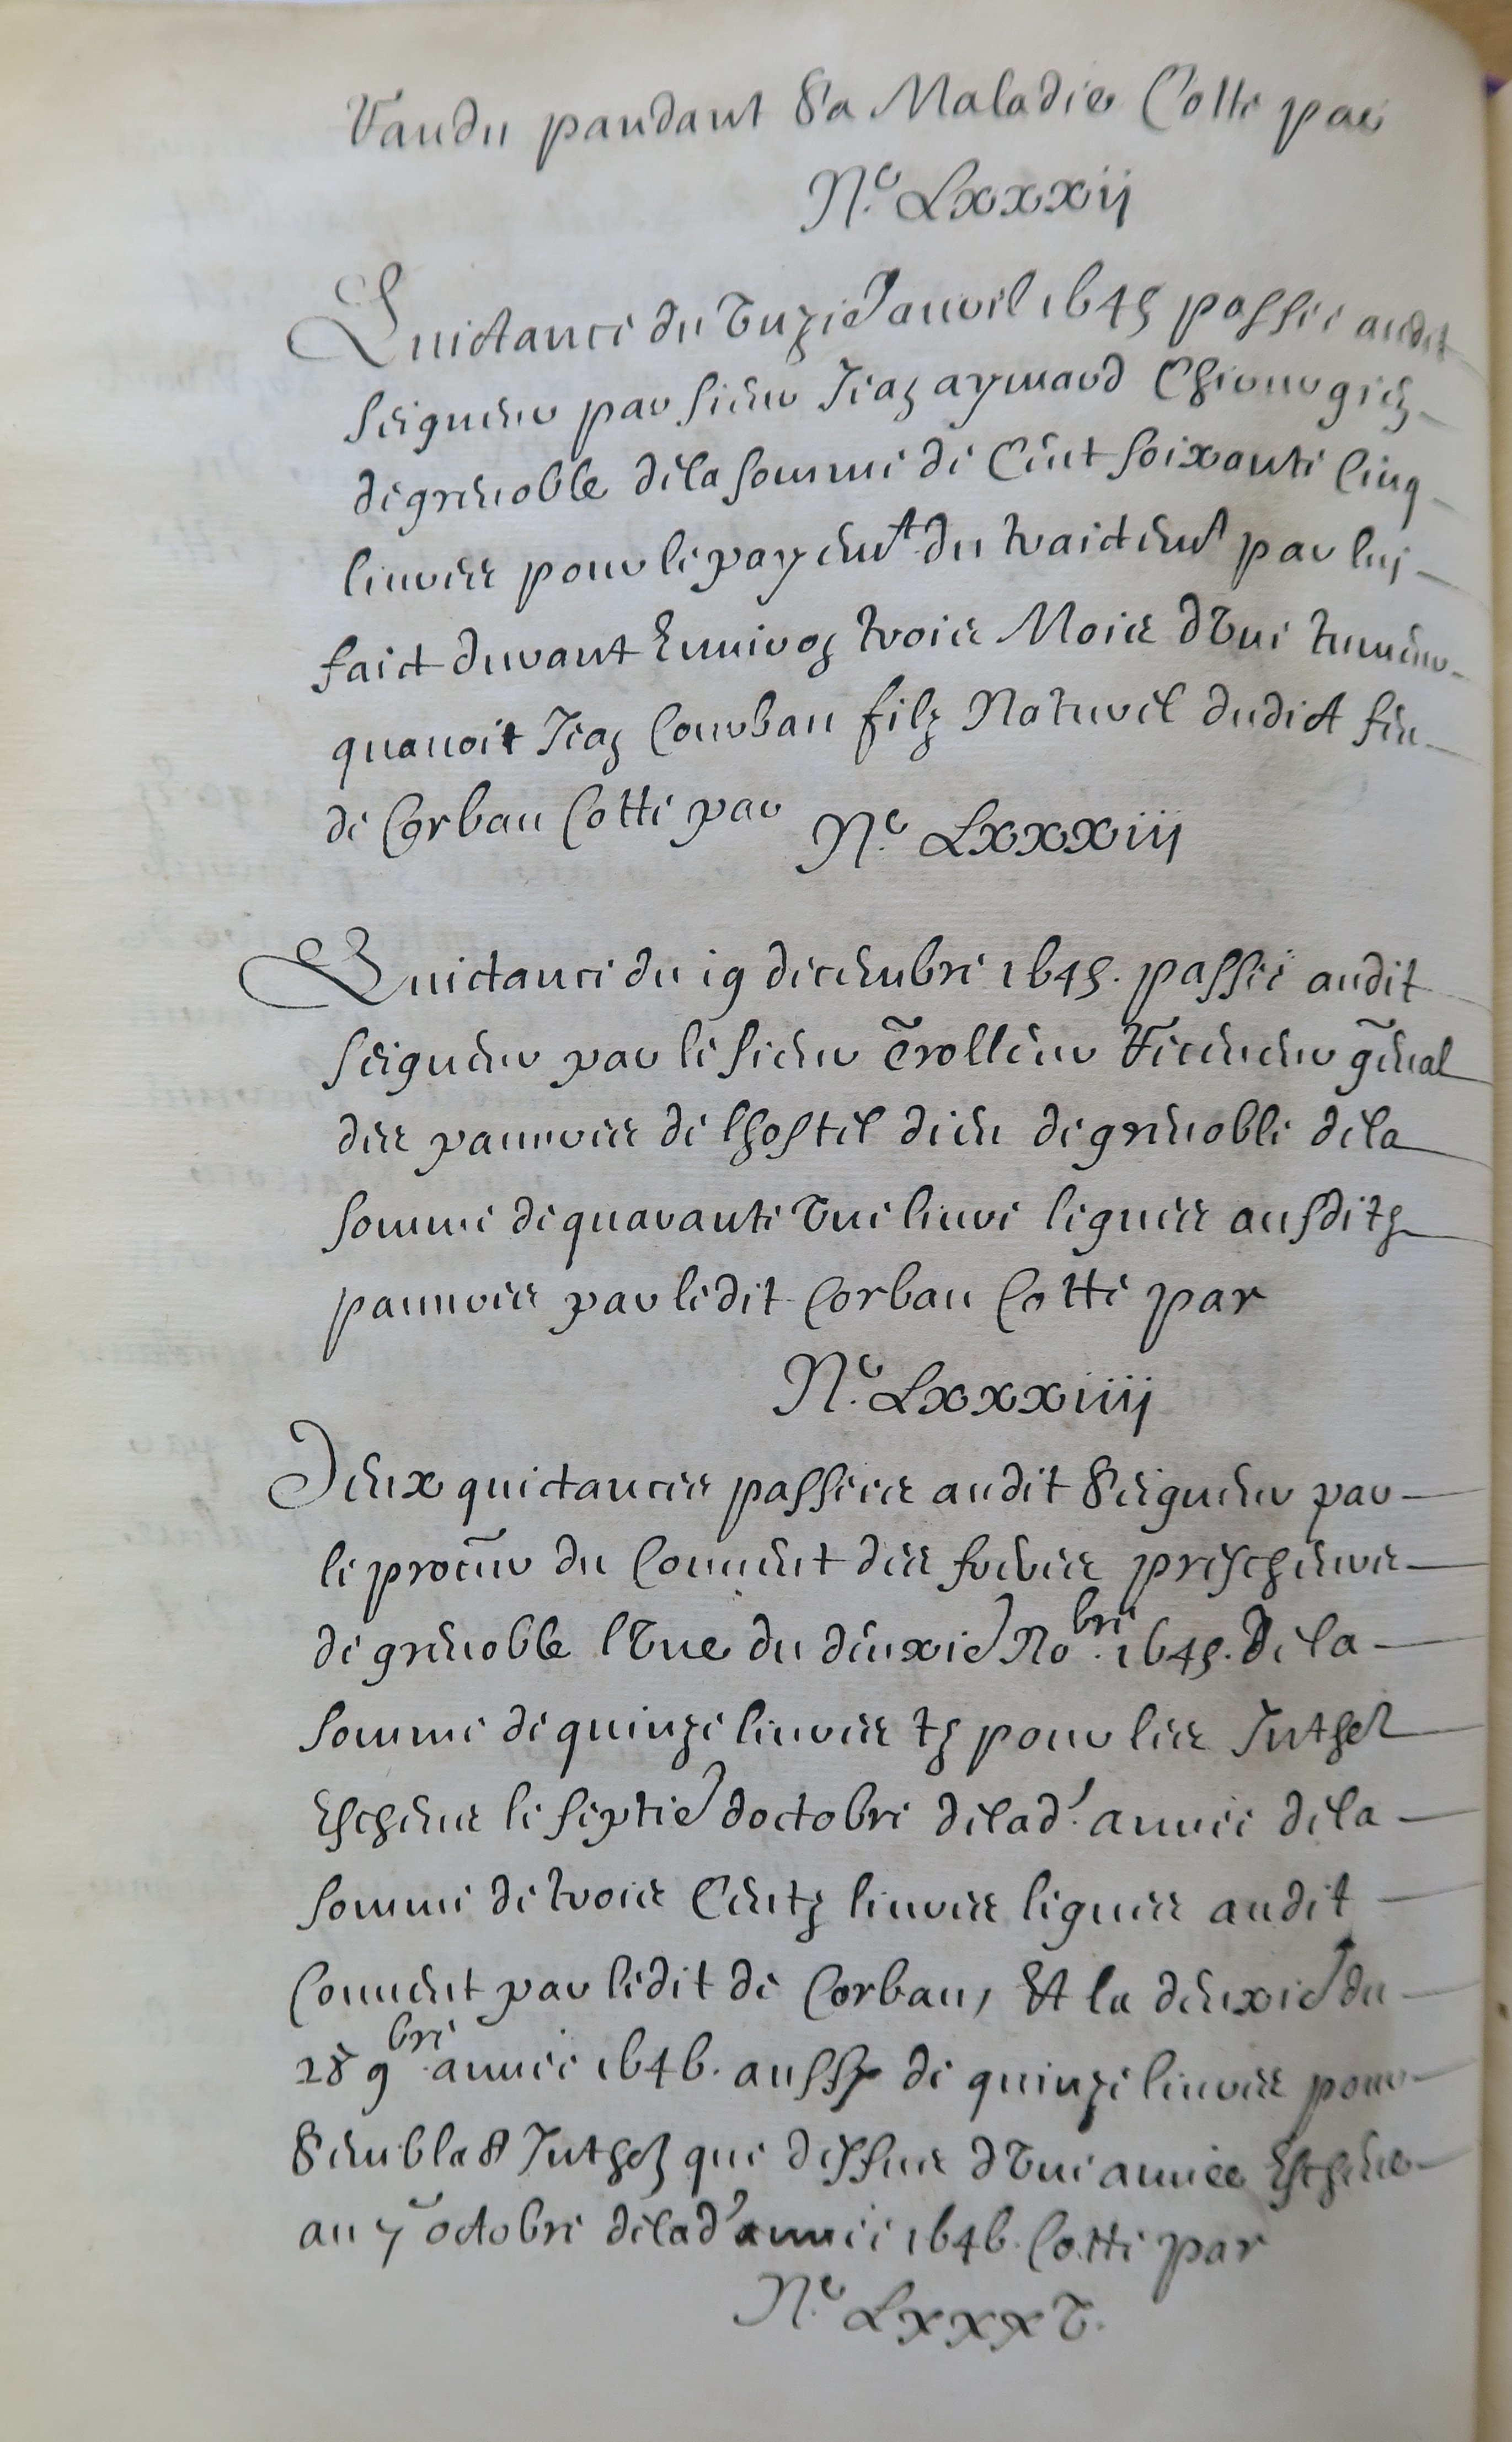 Vandu pandant Sa Maladie Cotté par
N.e Lxxxij
Quictance du Vnzie d'auril 1645 passée audit
seigneur par sieur Jean aymard Chirurgien
de grenoble de la somme de Cent soixante Cinq
liures pour le payemt du traictemt par luy
faict durant Enuiron trois Mois d'Vne tumeur
qu'auoit Jean Courbau filz Naturel dudict sieur
de Corbau Cotté par N.e Lxxxiij
Quictance du 19 decembre 1645. passée audit
seigneur par le sieur Trolleur Receueur gñal
des pauures de lhostel dieu de grenoble de la
somme de quarante Vne liure leguée ausditz
pauures par ledit Corbau Cotté par
N.e Lxxxiiij
Deux quictances passées audit Seigneur par
le procur du Conuent des freres prescheurs
de grenoble l'Vne du deuxie No.bre 1645. De la
somme de quinze liures tz pour les Interestz
Escheus le septie d'octobre de lad. année de la
somme de trois Centz liures leguée audit
Conuent par ledit de Corbau, Et la deuxie du
28 9.bre année 1646. aussy de quinze liures pour
Semblables Interestz que dessus d'Vne année Escheue
au 7e octobre de lad. année 1646. Cotté par
N.e LxxxV.